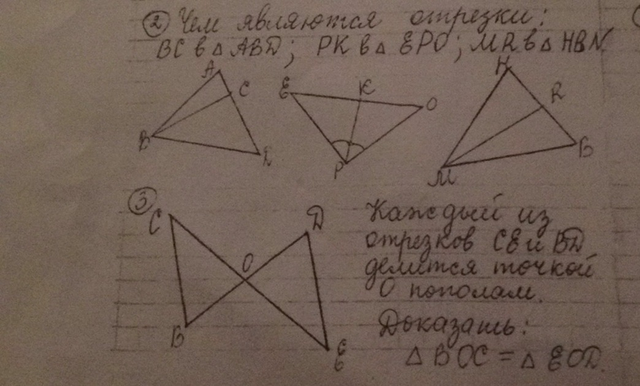 ② Чем являются отрезки:
BC в △ ABD; PK в △ EPO; MR в △ HBN.
A
C
B
D
E
K
O
P
H
R
B
M
③
C
D
O
B
E
Каждый из
отрезков CE и BD
делится точкой
O пополам.
Доказать:
△ BOC = △ EOD.